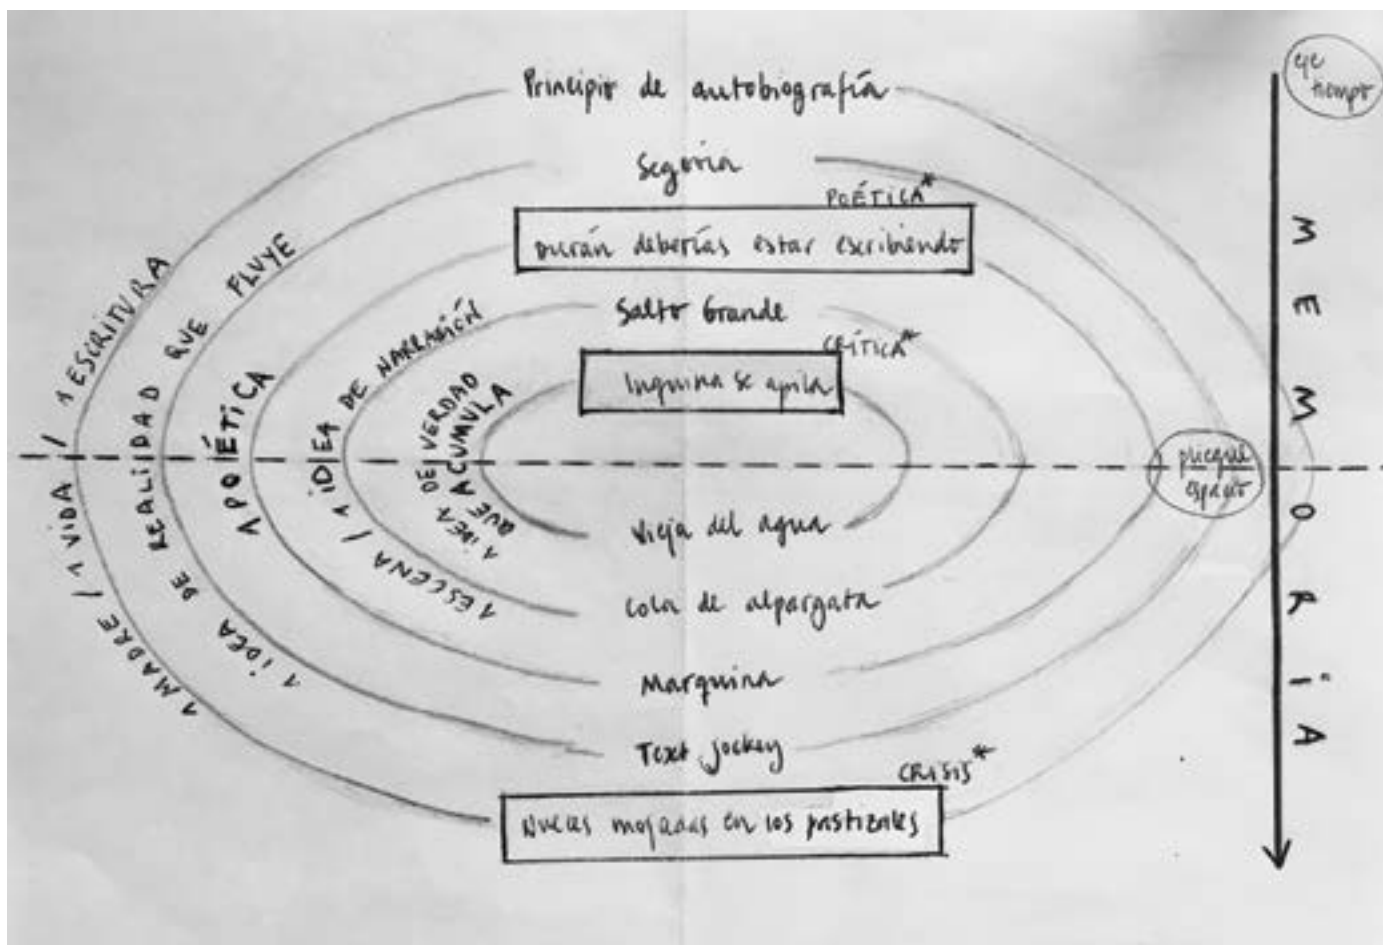 eje
tiempo
Principio de autobiografía
Segovia
POÉTICA*
Durán deberías estar escribiendo
Salto Grande
CRÍTICA*
se apila
Vieja del agua
Cola de alpargata
Marquina
Text jockey
CRISIS*
Nueces mojadas en los pastizales
1 MADRE / 1 VIDA / 1 ESCRITURA
1 IDEA DE REALIDAD QUE FLUYE
APOÉTICA
1 ESCENA / 1 IDEA DE NARRACIÓN
1 IDEA DE VERDAD
QUE ACUMULA
pliegue
espacio
MEMORIA